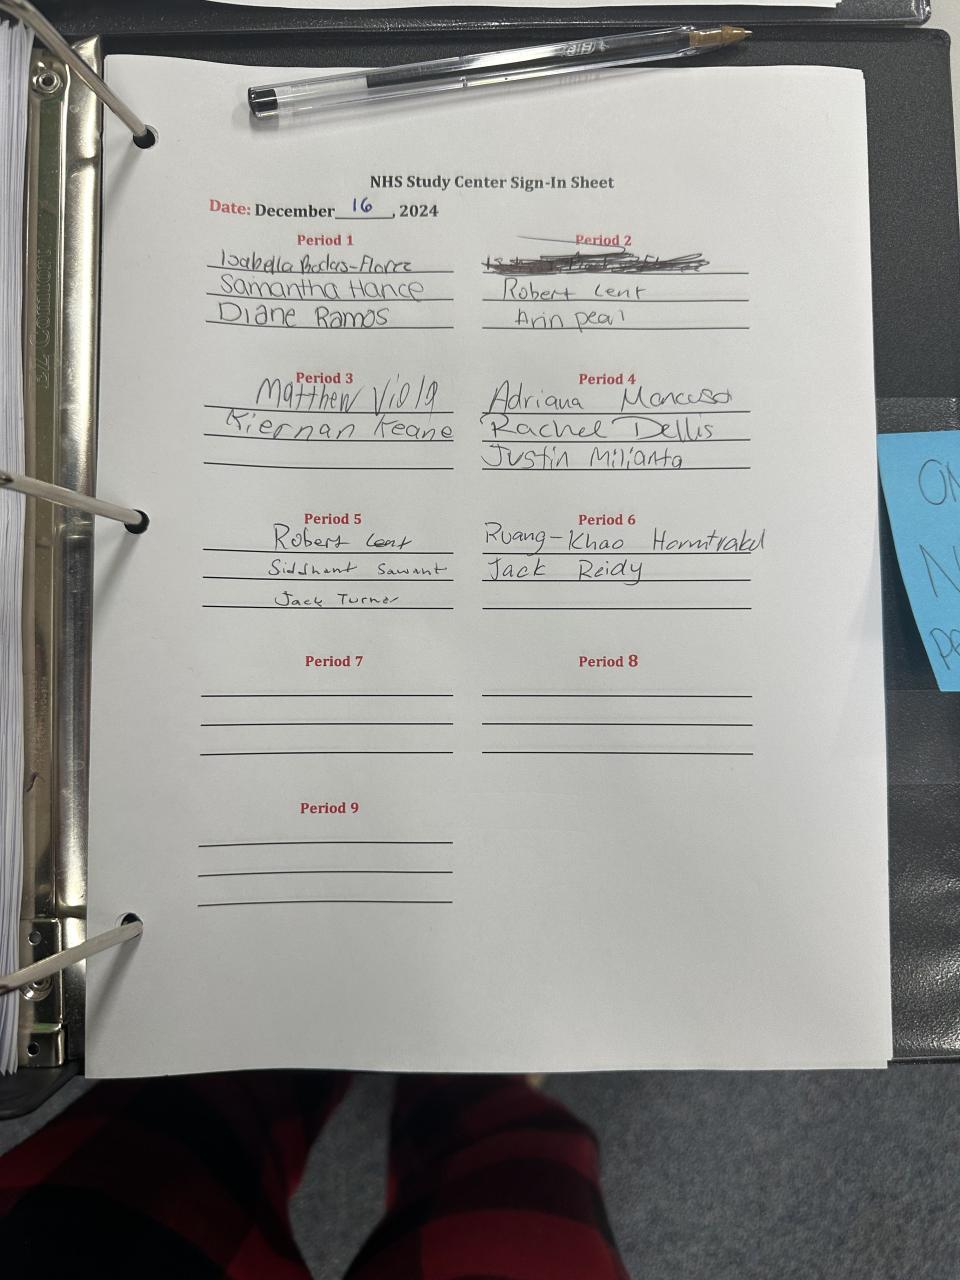 NHS Study Center Sign-In Sheet
Date: December 16, 2024
Period 1
Isabella
Samantha Hance
Diane Ramos
Period 2
Robert Lent
Arin peal
Period 3
Matthew Viola
Kiernan Keane
Period 4
Adriana Mancuso
Rachel Dellis
Justin Milianta
Period 5
Robert Lent
Siddhant Sawant
Jack Turner
Period 6
Ruang-Khao
Jack Reidy
Period 7
Period 8
Period 9
BIC
ON